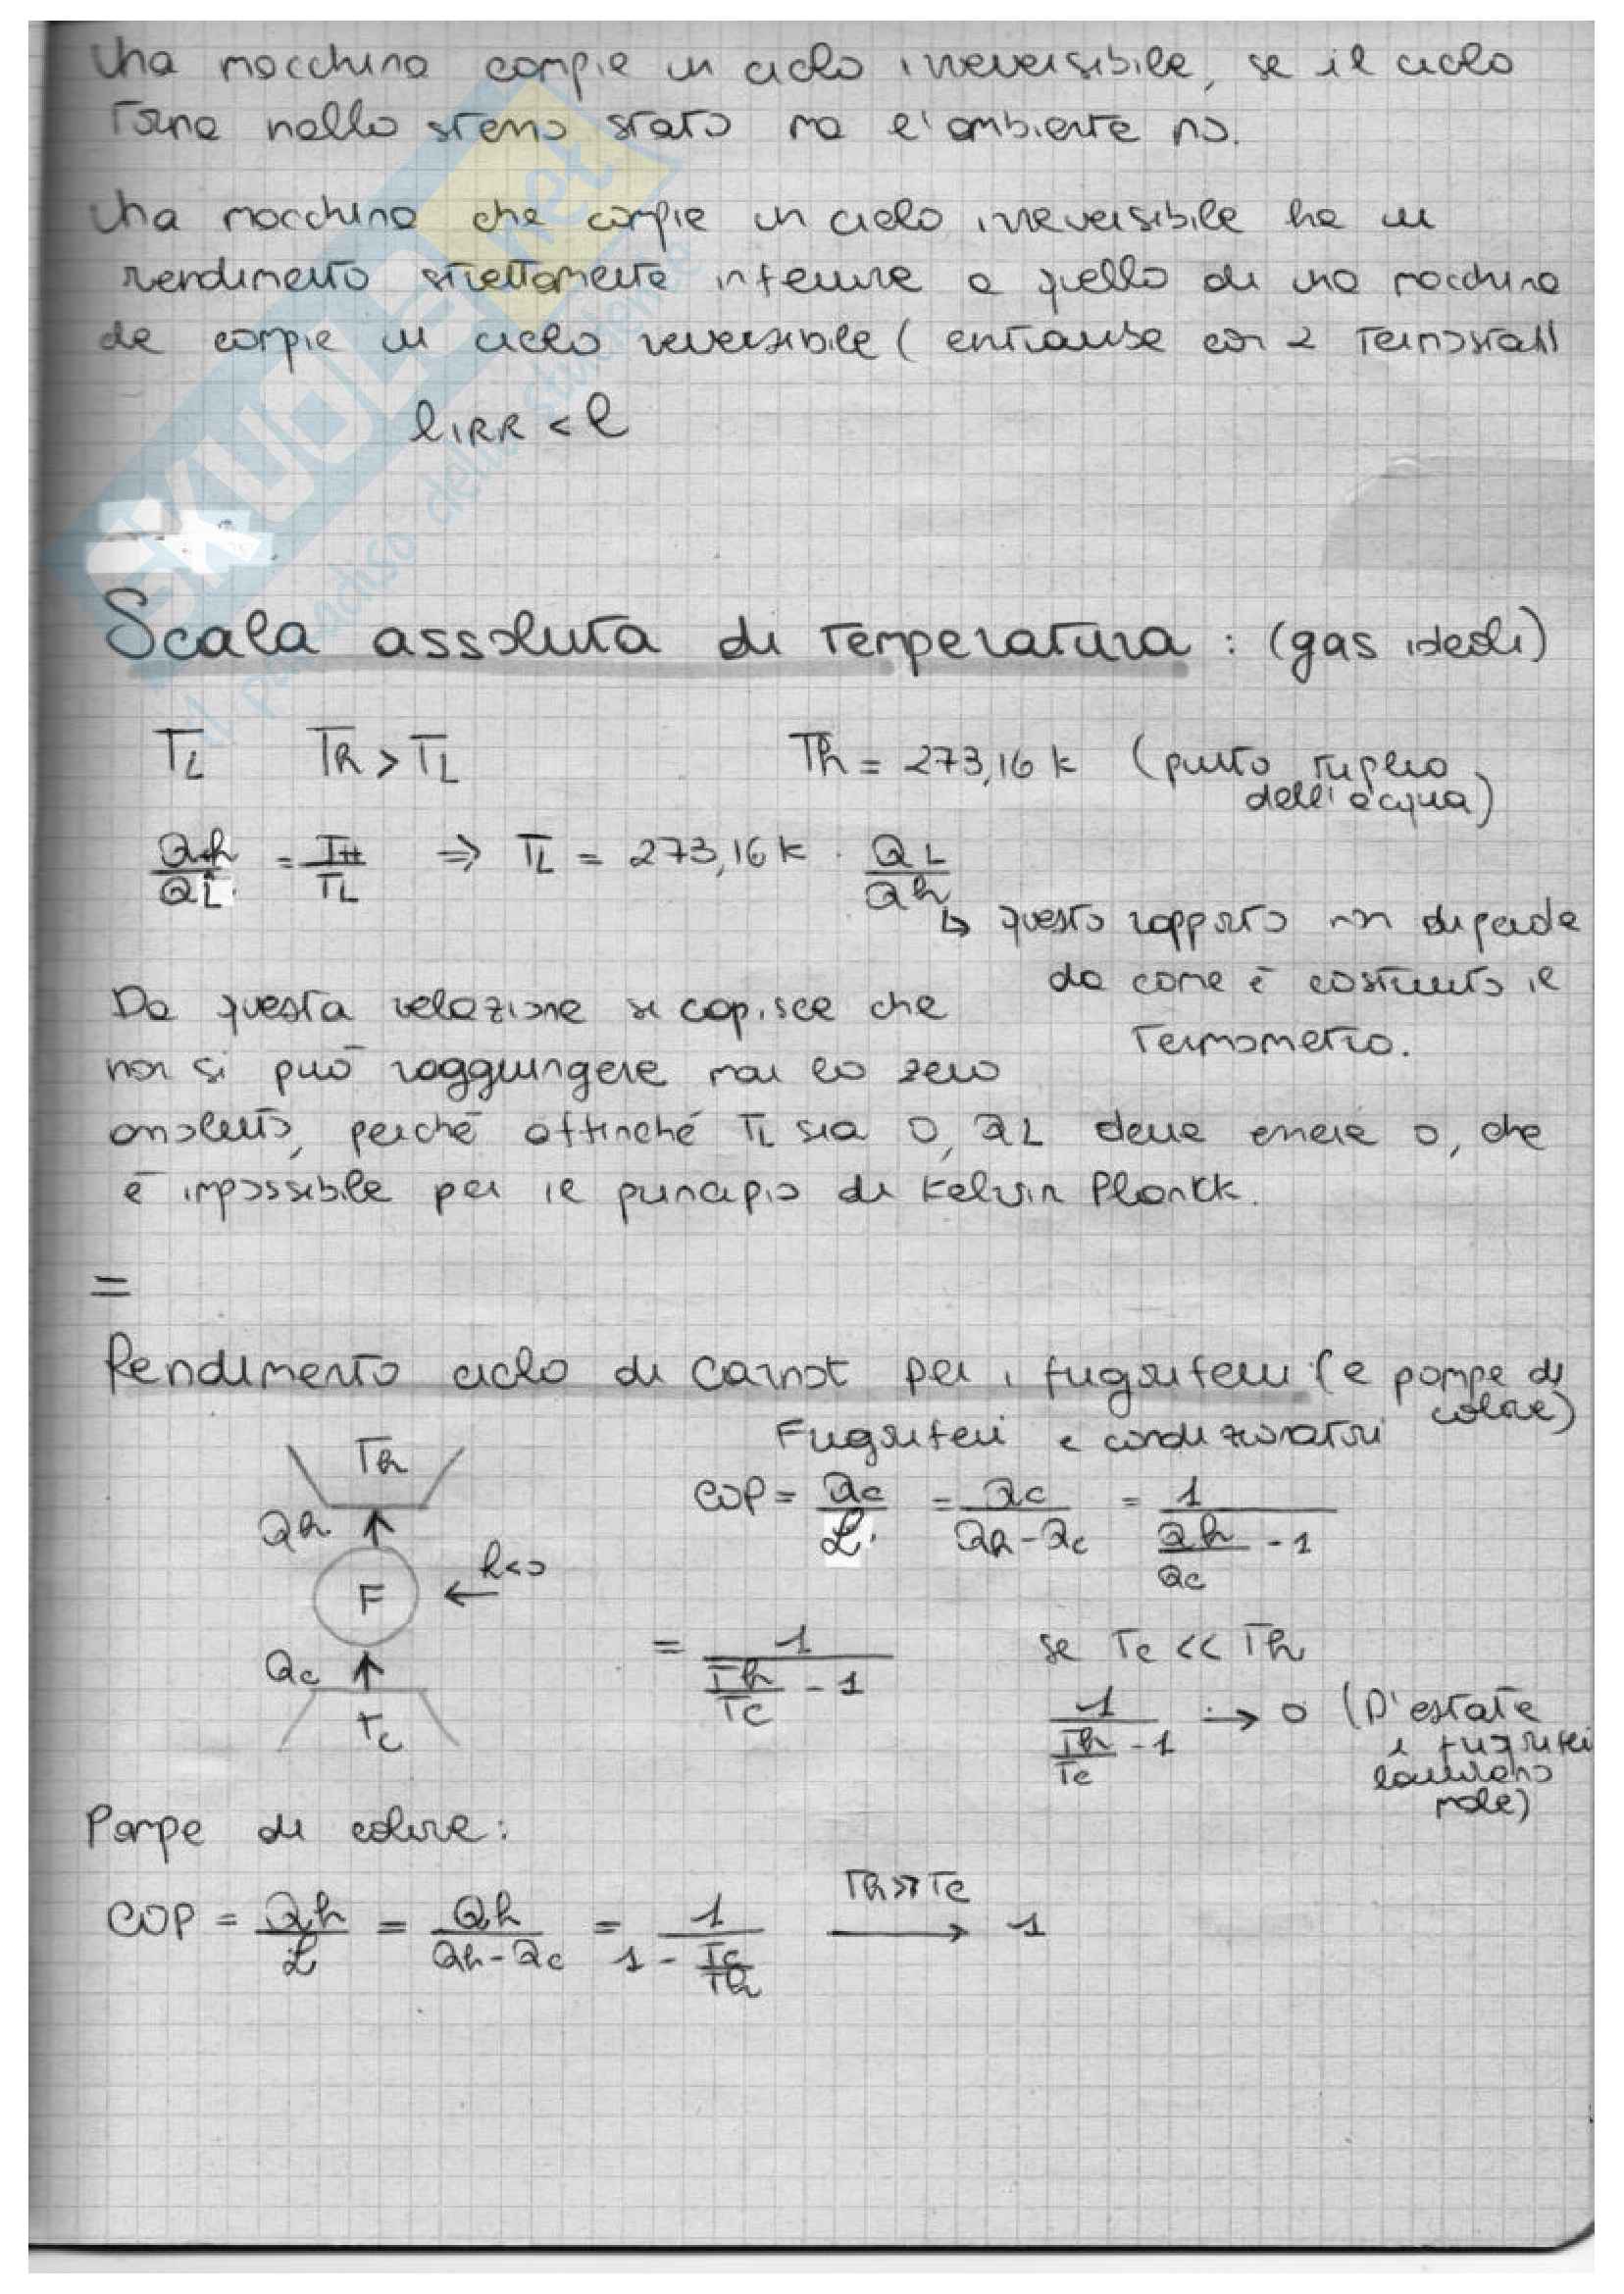 Una macchina compie un ciclo irreversibile, se il ciclo
torna nello stesso stato ma l'ambiente no.
Una macchina che compie un ciclo irreversibile ha un
rendimento strettamente inferiore a quello di una macchina
che compie un ciclo reversibile (entrambe con 2 termostati
ℓIRR < ℓ
SKUOLA.net
il paradiso dello studente
Scala assoluta di temperatura : (gas ideali)
TL Th > TL Th = 273,16 K (punto triplo
dell'acqua)
Qh/QL = TH/TL ⇒ TL = 273,16 K · QL/Qh
↳ questo rapporto non dipende
da come è costruito il
termometro.
Da questa relazione si capisce che
non si può raggiungere mai lo zero
assoluto, perché affinché TL sia 0, QL deve essere 0, che
è impossibile per il principio di Kelvin Planck.
=
Rendimento ciclo di Carnot per i frigoriferi (e pompe di
calore)
Frigoriferi e condizionatori
Th
Qh
F
L<0
Qc
Tc
COP = Qc/L = Qc/(Qh-Qc) = 1/(Qh/Qc - 1)
= 1/(Th/Tc - 1) se Tc << Th
1/(Th/Tc - 1) → 0 (D'estate
i frigoriferi
lavorano
male)
Pompe di calore:
COP = Qh/L = Qh/(Qh-Qc) = 1/(1 - Tc/Th) Th>>Tc → 1